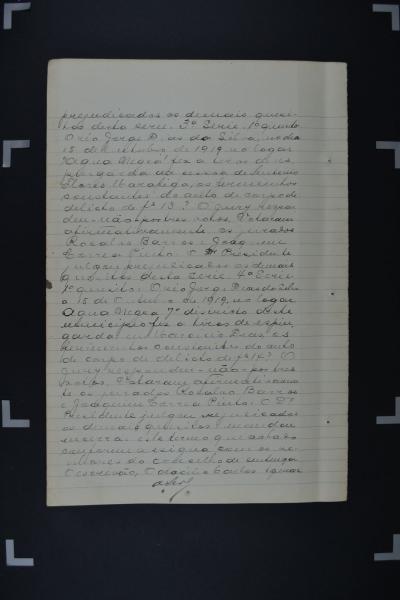 prejudicados os demais quesi-
tos desta serie. 3ª Serie. 1º quesito
O réo Jorge Dias da Silva, no dia
15 de Outubro de 1919, no logar
"Agua Negra" fez a tiros de es-
pingarda em
Flores, os ferimentos
constantes do auto de corpo de
delicto de fs 13? O jury respon-
deu: não por tres votos. Votaram
affirmativamente os jurados
Rosalvo Barros e Joaquim
Correa Pinto. O Dr Presidente
julgou prejudicados os demais
quesitos desta serie. 4ª Serie
1º quesito: O réo Jorge Dias da Silva
a 15 de Outubro de 1919, no logar
Agua Negra 7º districto deste
municipio fez a tiros de espin-
garda em Dias os
ferimentos constantes do auto
de corpo de delicto de fs 14? O
jury respondeu não por tres
votos. Votaram affirmativamen-
te os jurados Rosalvo Barros
e Joaquim Correa Pinto. O Dr
Presidente julgou prejudicados
os demais quesitos e mandou
encerrar este termo que achado
conforme assigna com os
membros do conselho de sentença
O escrivão,